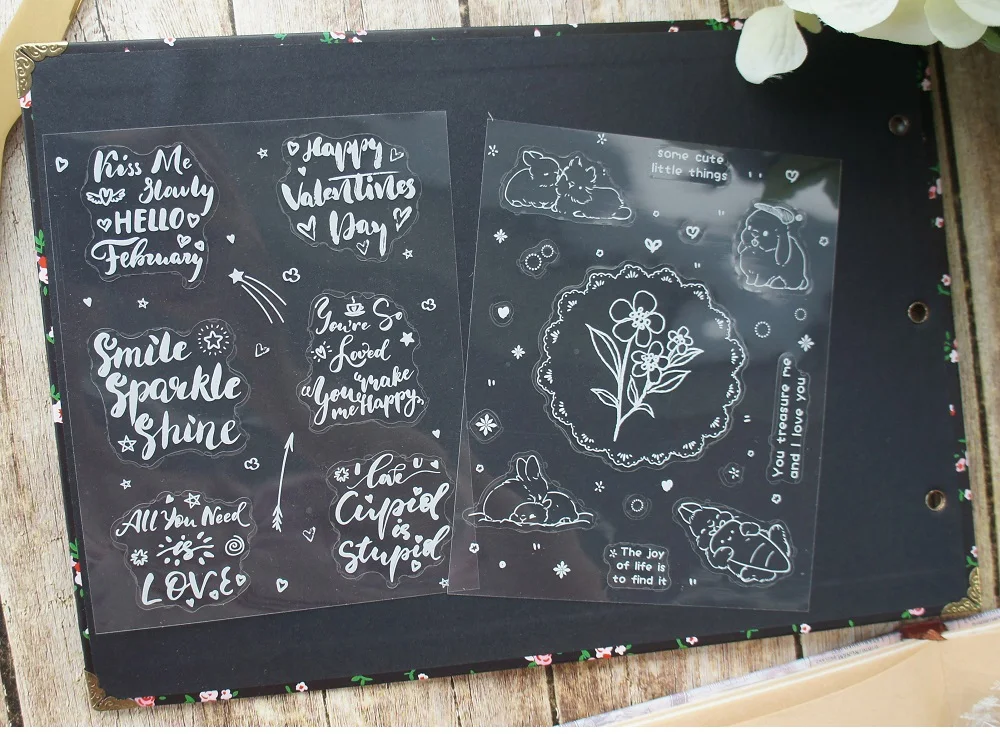 Kiss Me
Slowly
HELLO
February
Happy
Valentines
Day
Smile
Sparkle
Shine
You're So
Loved
You make
me Happy
All You Need
is
LOVE
I love U
Cupid
is
Stupid
some cute
little things
You treasure me
and I love you
The joy
of life is
to find it